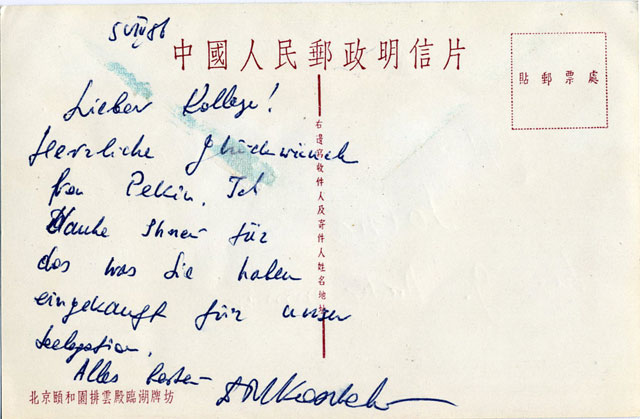 中國人民郵政明信片
貼郵票處
Lieber Kollege!
Herzliche Glückwünsch
from Pekin. Ich
danke Ihnen für
das was Sie haben
eingekauft für unser
Delegation.
Alles besten
右邊寫收件人及寄件人姓名地址
北京頤和園排雲殿臨湖牌坊